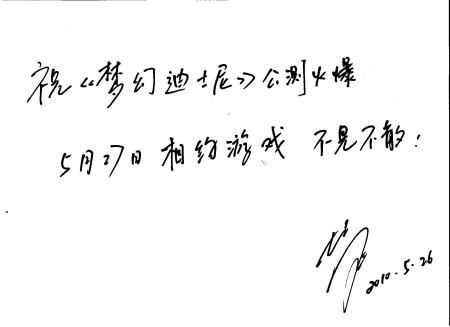 祝《梦幻迪士尼》公测火爆
5月27日 相约游戏 不见不散!
2010.5.26